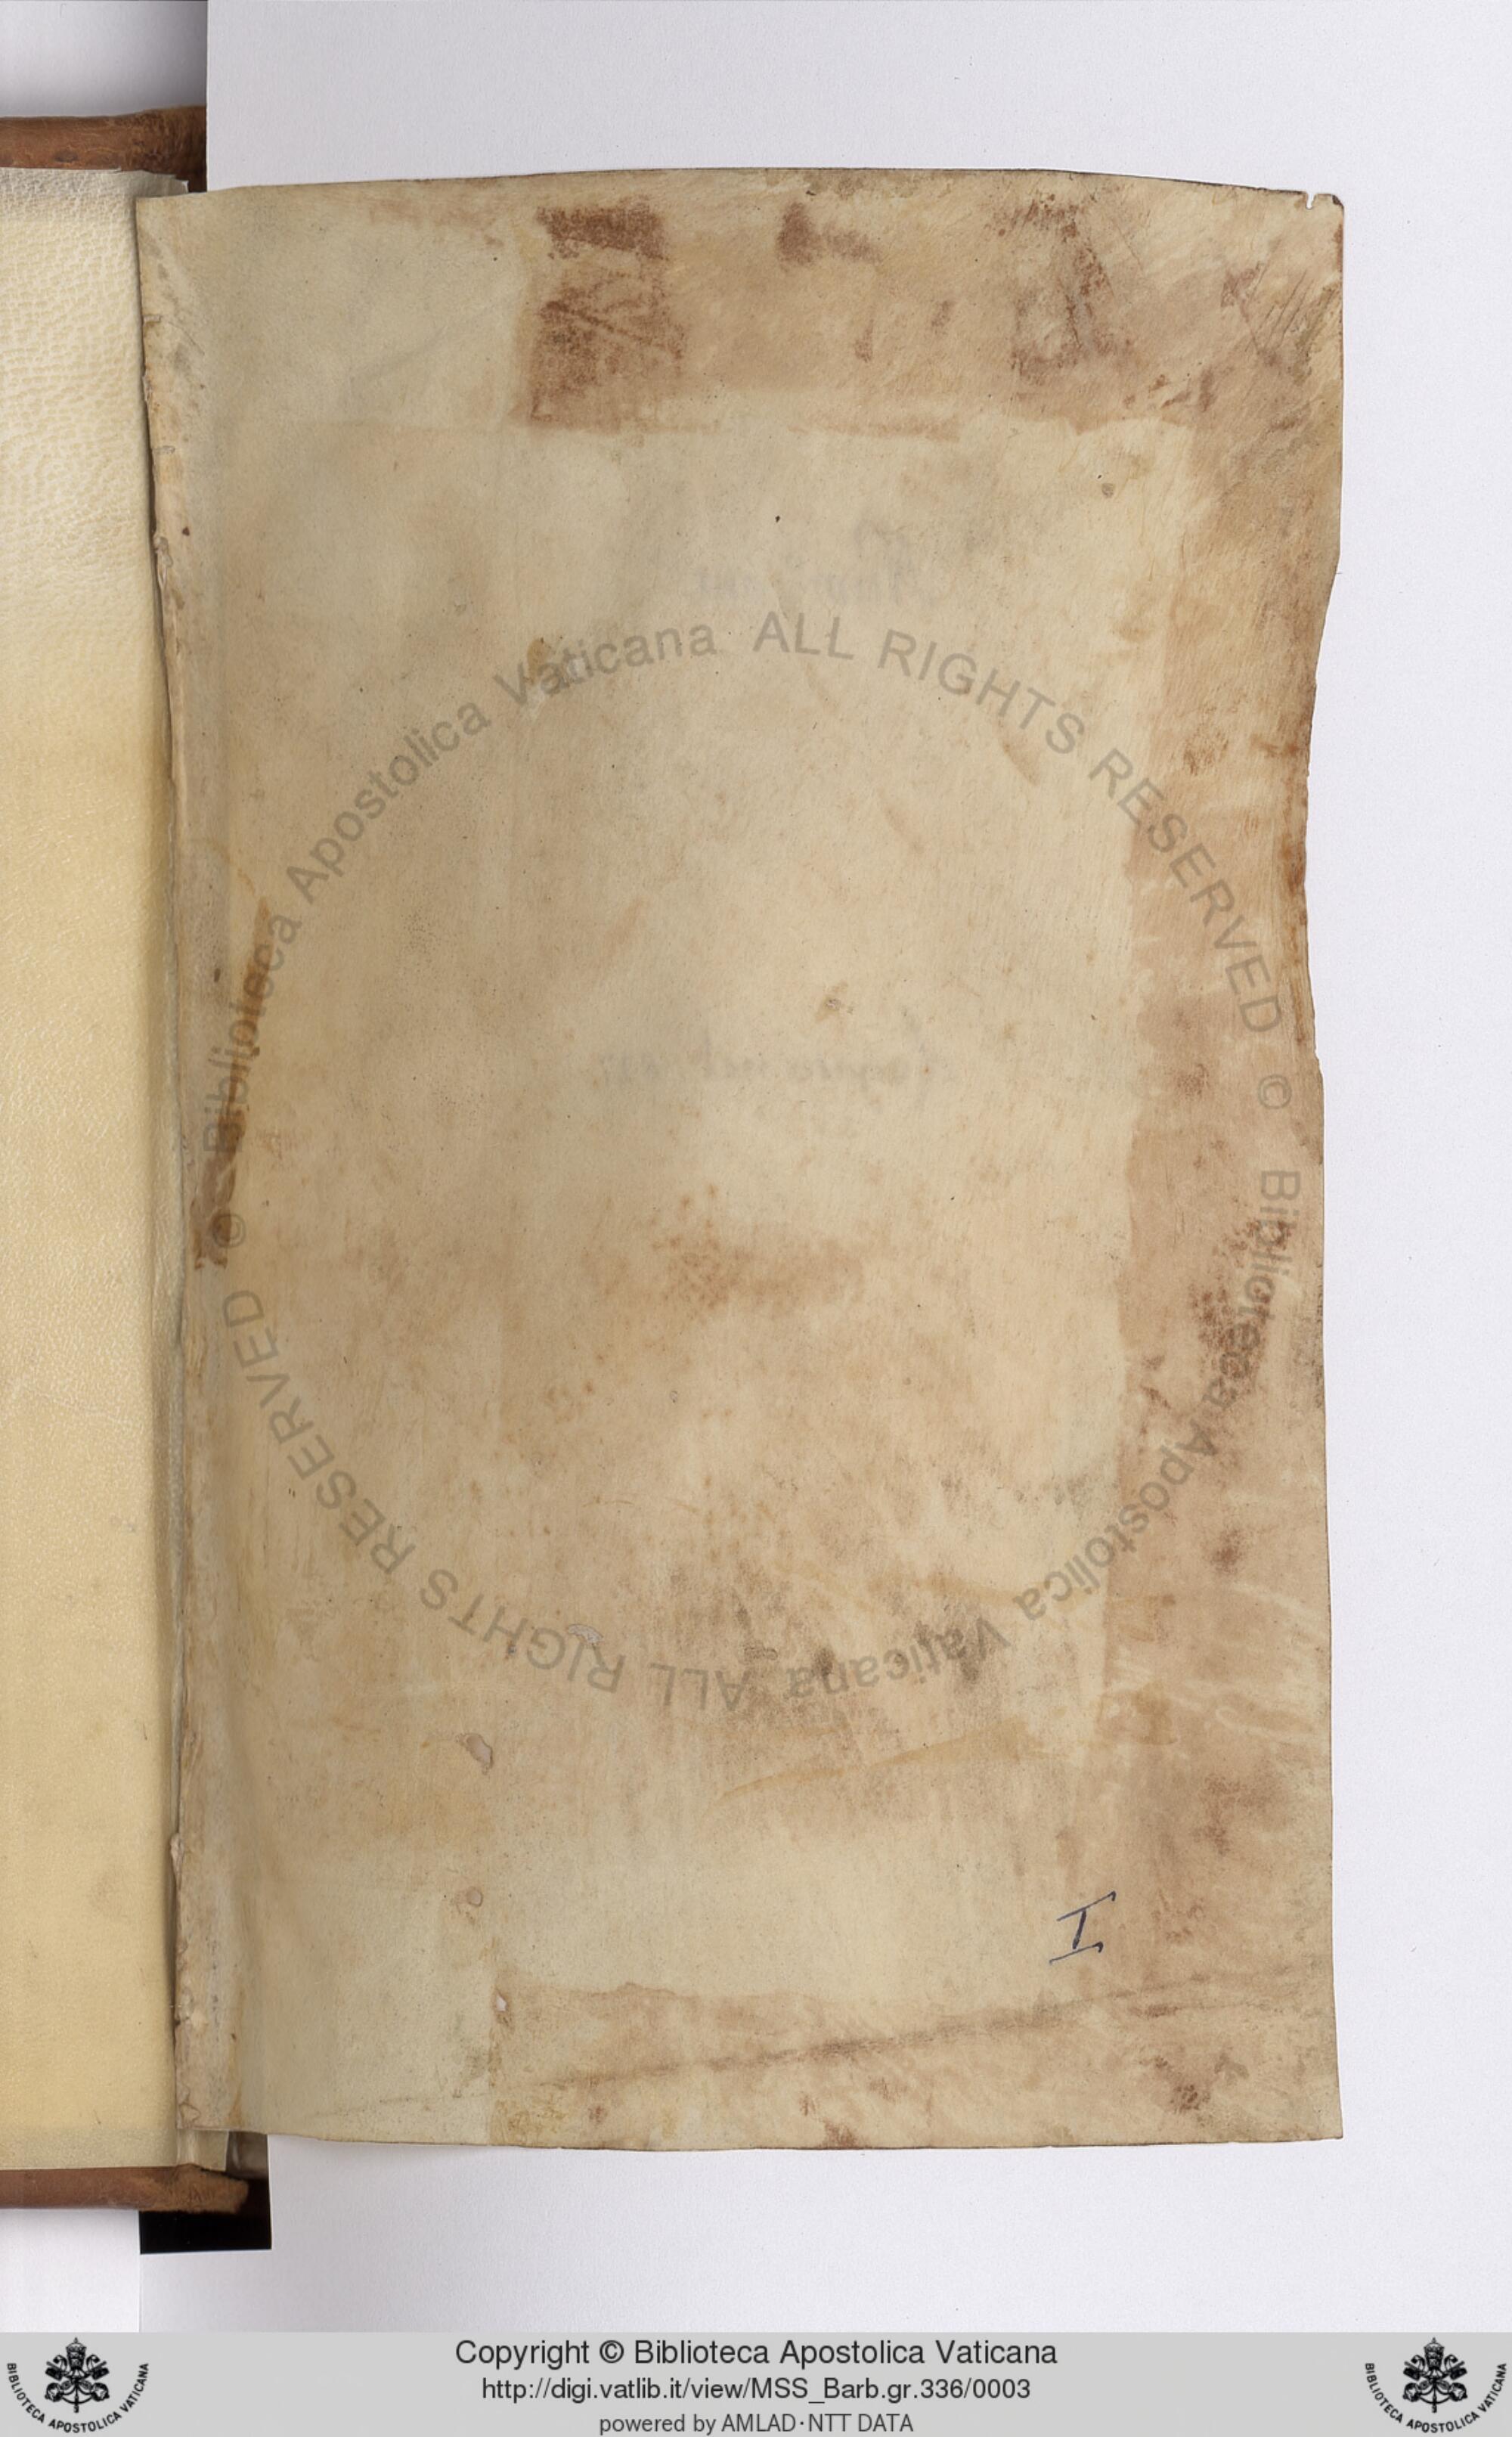 I
© Biblioteca Apostolica Vaticana ALL RIGHTS RESERVED
© Biblioteca Apostolica Vaticana ALL RIGHTS RESERVED
Copyright © Biblioteca Apostolica Vaticana
http://digi.vatlib.it/view/MSS_Barb.gr.336/0003
powered by AMLAD·NTT DATA
BIBLIOTECA APOSTOLICA VATICANA
BIBLIOTECA APOSTOLICA VATICANA